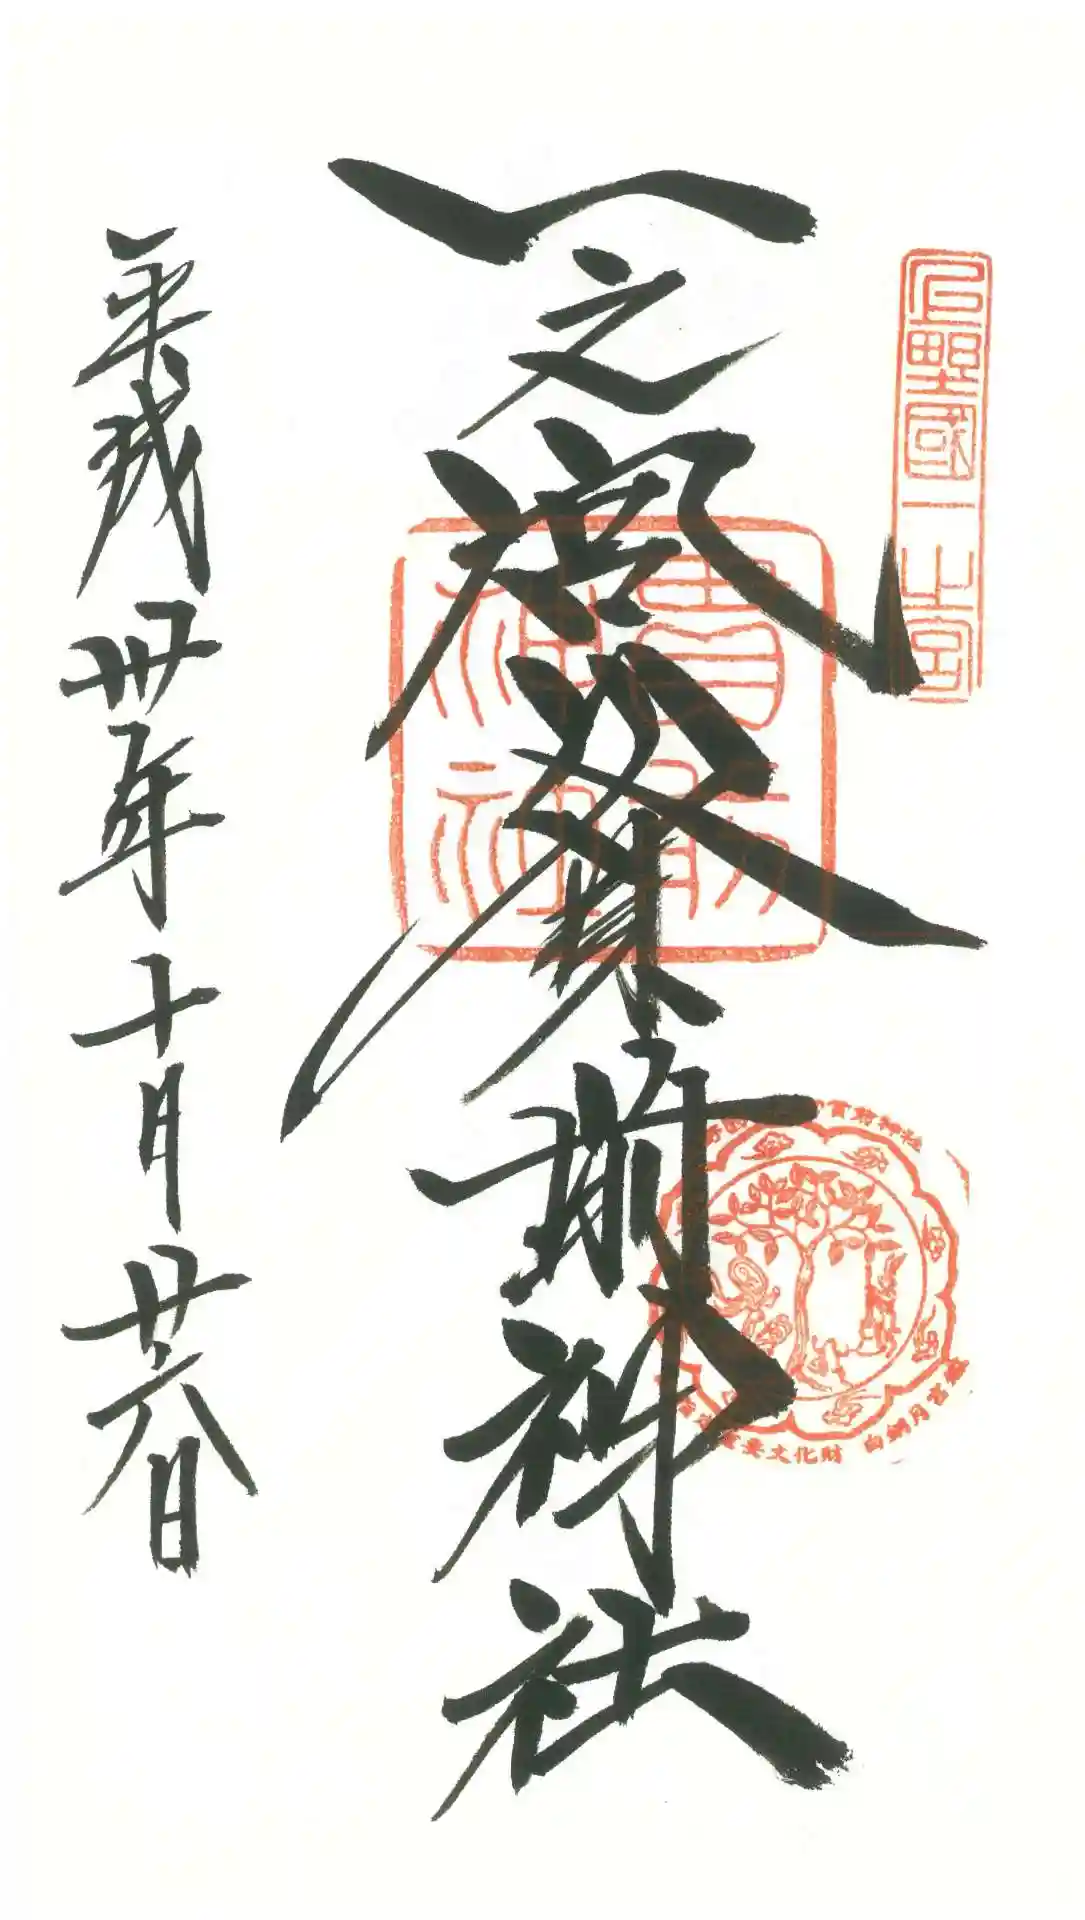 上野國一之宮
一之宮貫前神社
貫前神社
貫前神社
重要文化財 白銅月宮鑑
平成卅年十月廿六日